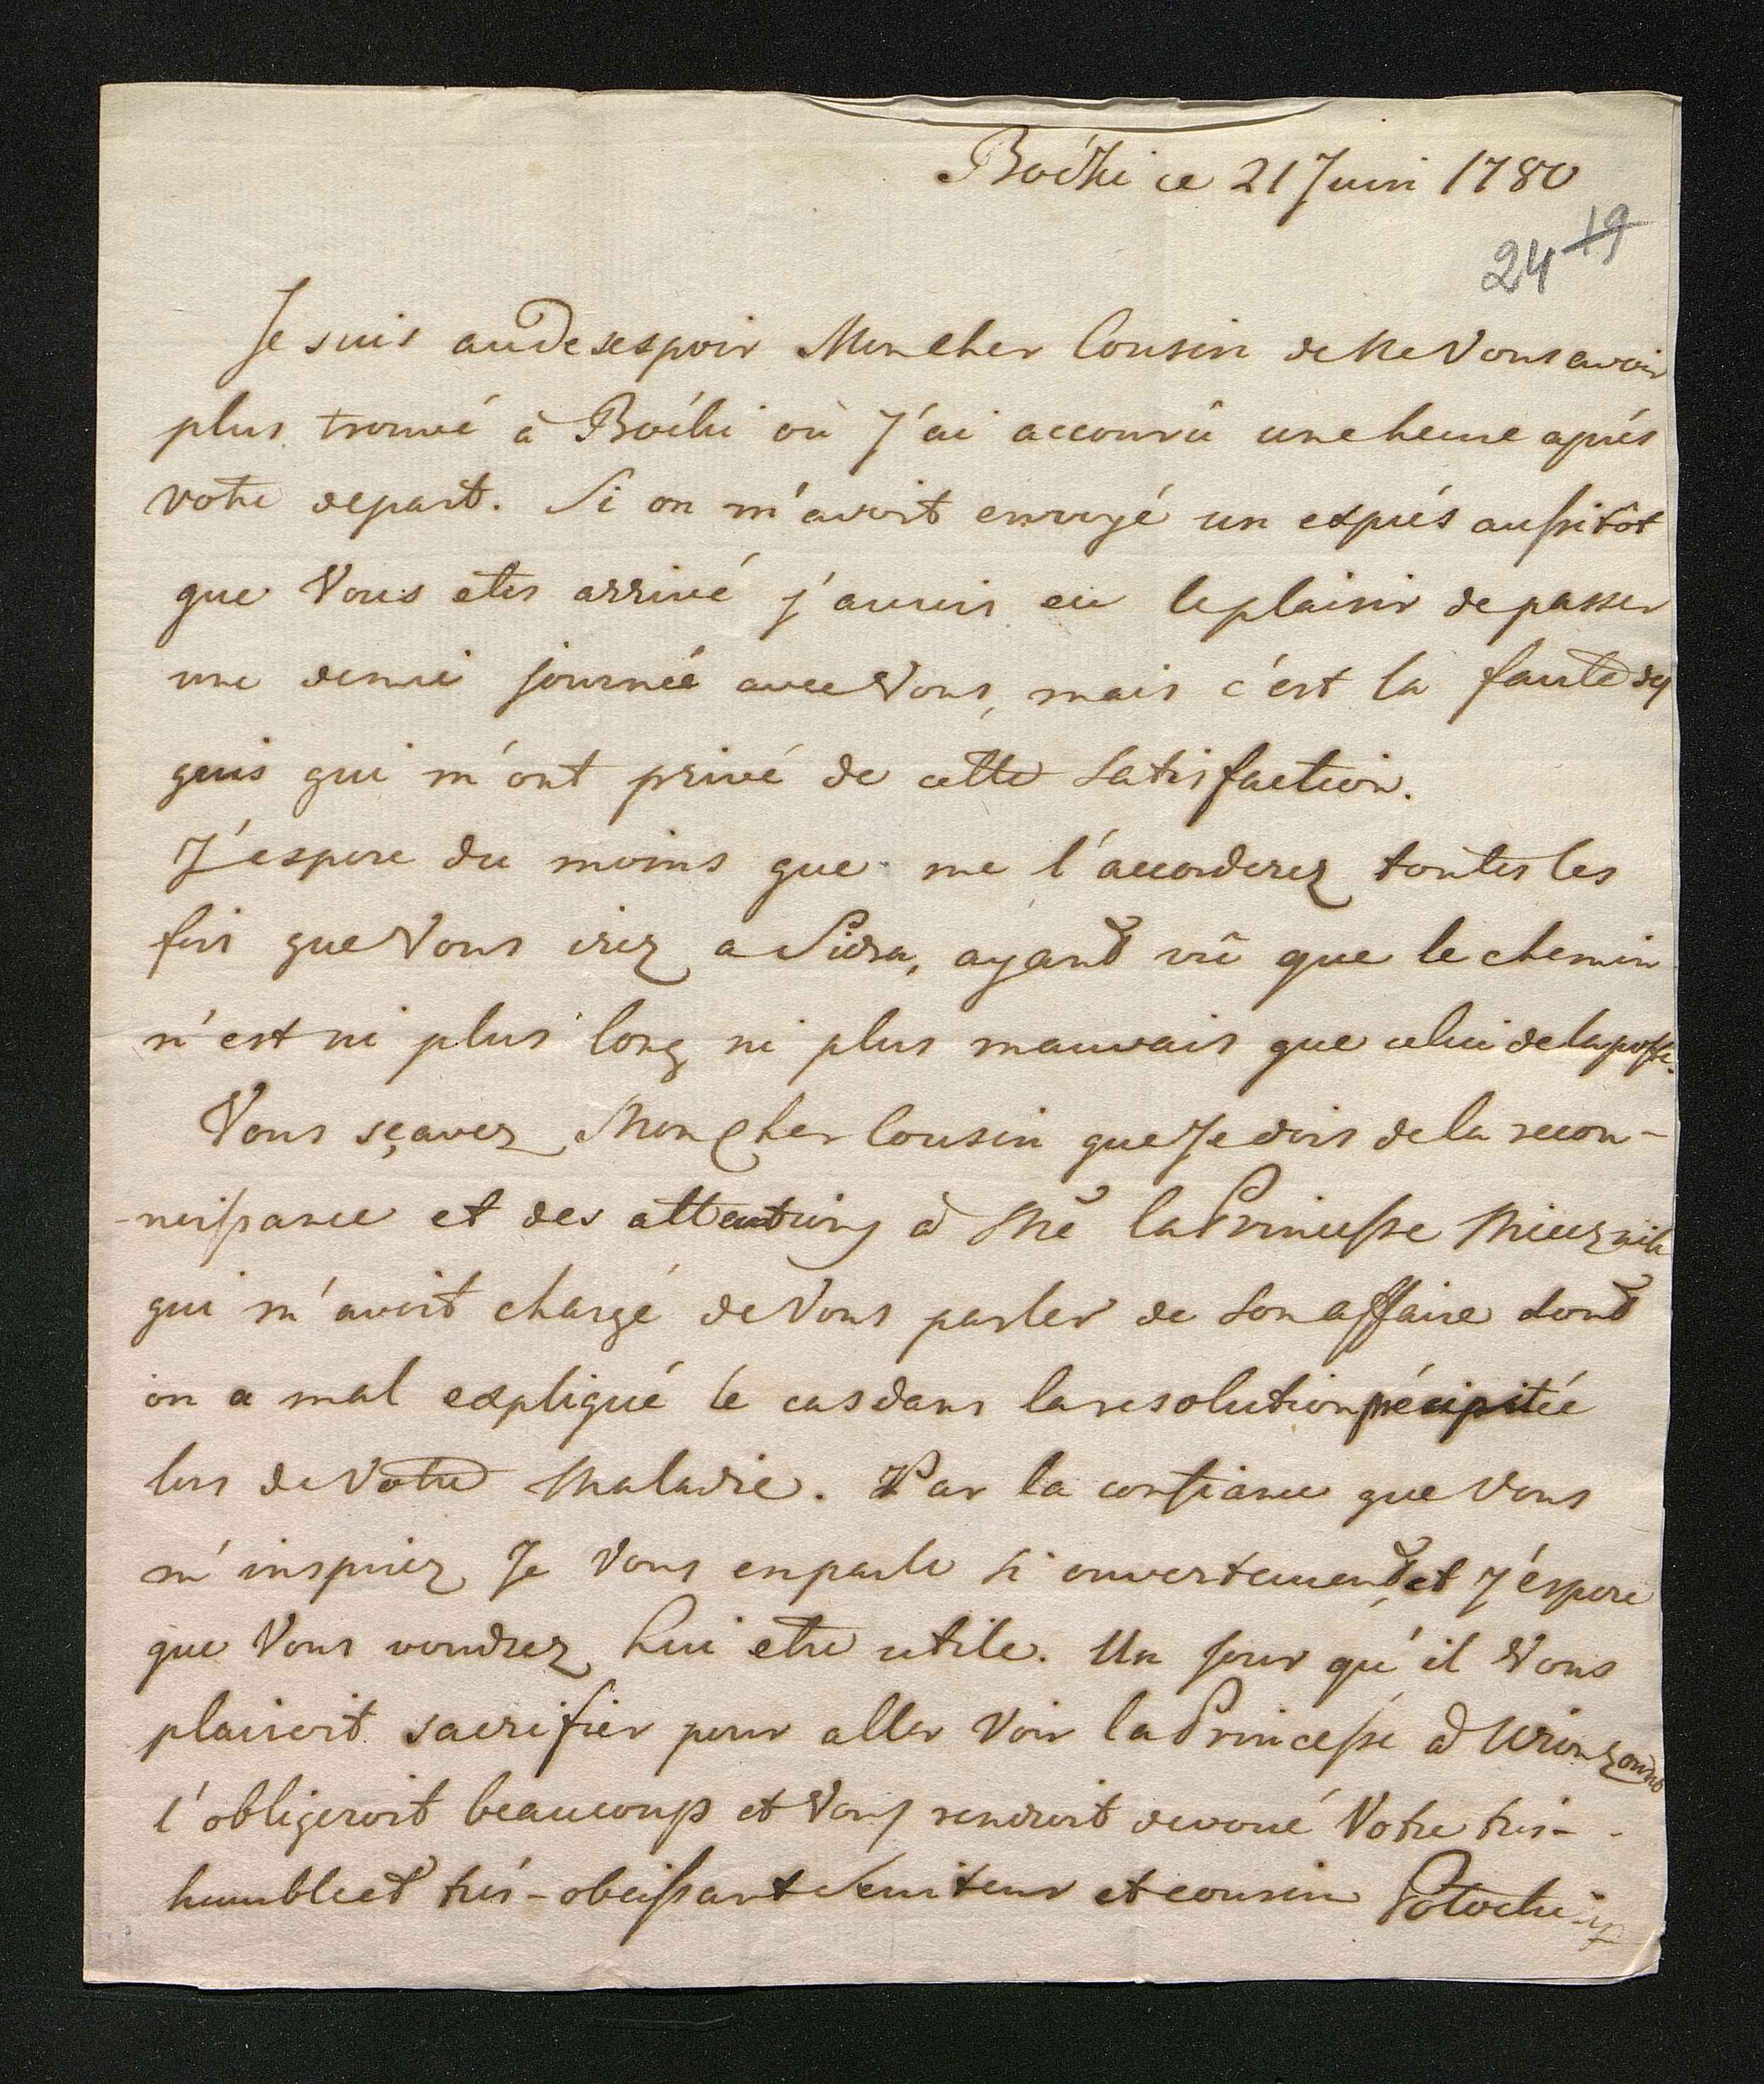 Boćki ce 21 Juin 1780
24 19
Je suis au Desespoir Mon Cher Cousin de Ne Vous avoir
plus trouvé à Boćki où J'ai accourû une heure aprés
votre depart. Si on m'avoit envoyé un exprés aussitôt
que Vous etes arrivé j'aurois eu le plaisir de passer
une demie journée avec Vous, mais c'est la faute des
gens qui m'ont privé de cette Satisfaction.
J'espere du moins que me l'accorderez toutes les
fois que Vous irez a Sidra, ayant vû que le chemin
n'est ni plus long ni plus mauvais que celui de la poste.
Vous sçavez Mon Cher Cousin que Je dois de la recon-
-noissance et des attentions à Me la Princesse
qui m'avoit chargé de Vous parler de Son affaire dont
on a mal expliqué le cas dans la resolution précipitée
lors de Votre Maladie. Par la confiance que Vous
m'inspirez Je Vous en parle si ouvertement, et J'éspere
que Vous voudrez Lui etre utile. Un jour qu'il Vous
plairoit sacrifier pour aller Voir la Princesse à
l'obligeroit beaucoup et Vous rendroit devoué Votre trés-
humble et trés-obeissant Serviteur et cousin Potocki